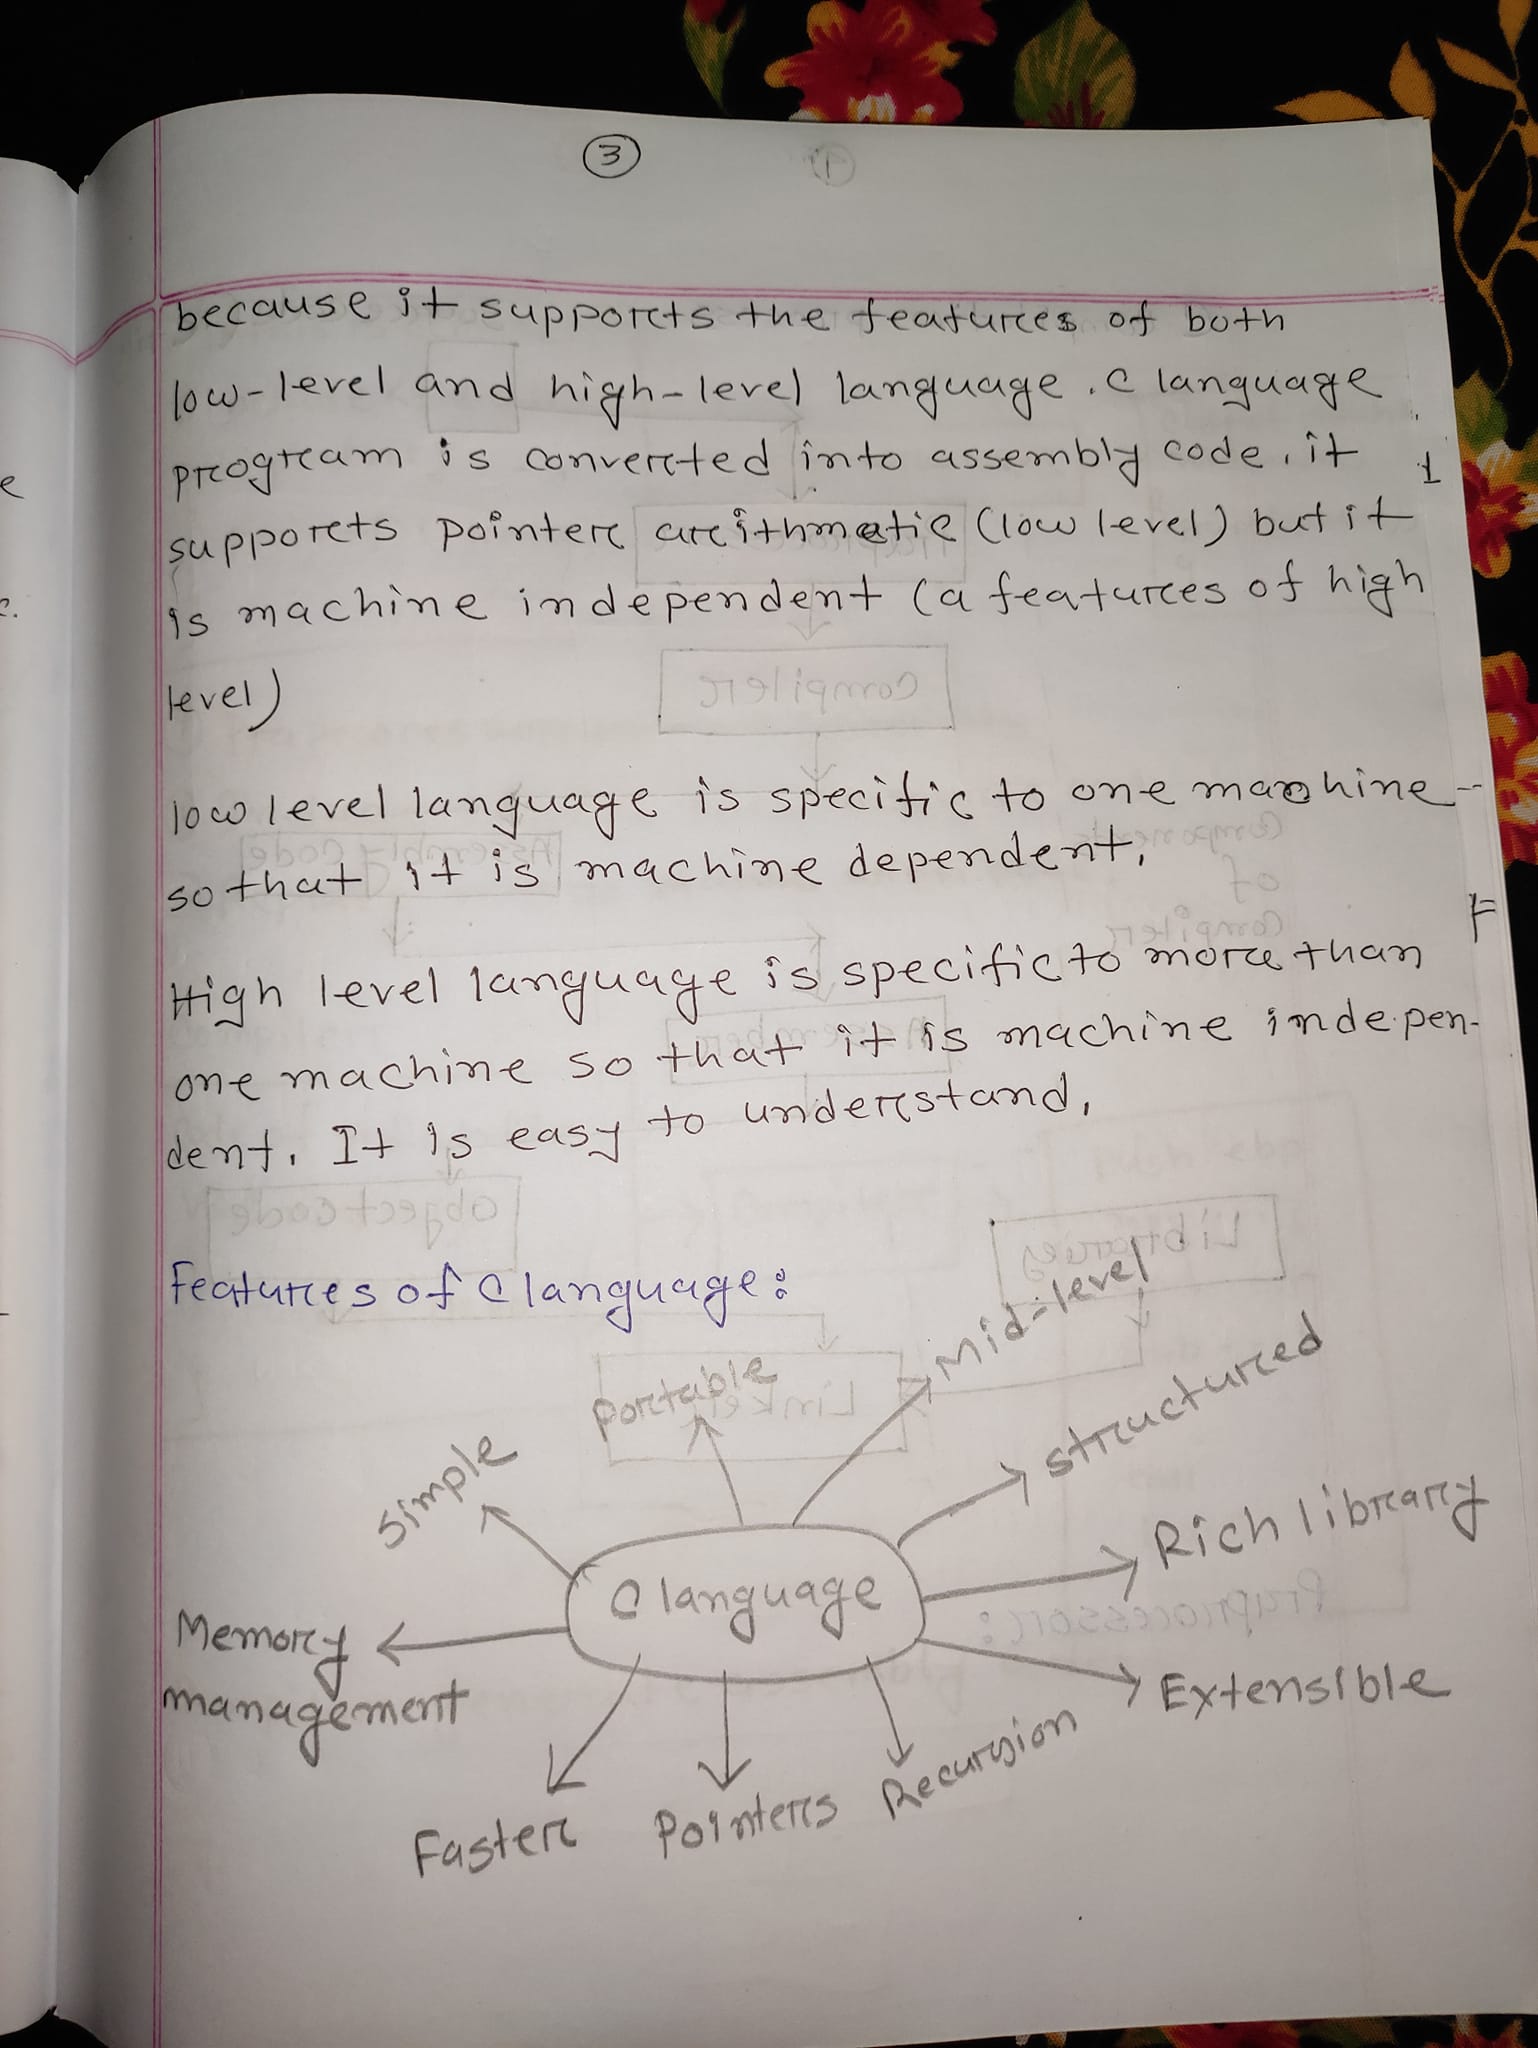 3
because it supports the features of both
low-level and high-level language. C language
program is converted into assembly code, it
supports pointer arithmatic (low level) but it
is machine independent (a features of high
level)
low level language is specific to one machine
so that it is machine dependent,
High level language is specific to more than
one machine so that it is machine indepen-
dent. It is easy to understand,
Features of C language:
Mid-level
portable
structured
Simple
Rich library
C language
Memory
management
Extensible
Recursion
Pointers
Faster